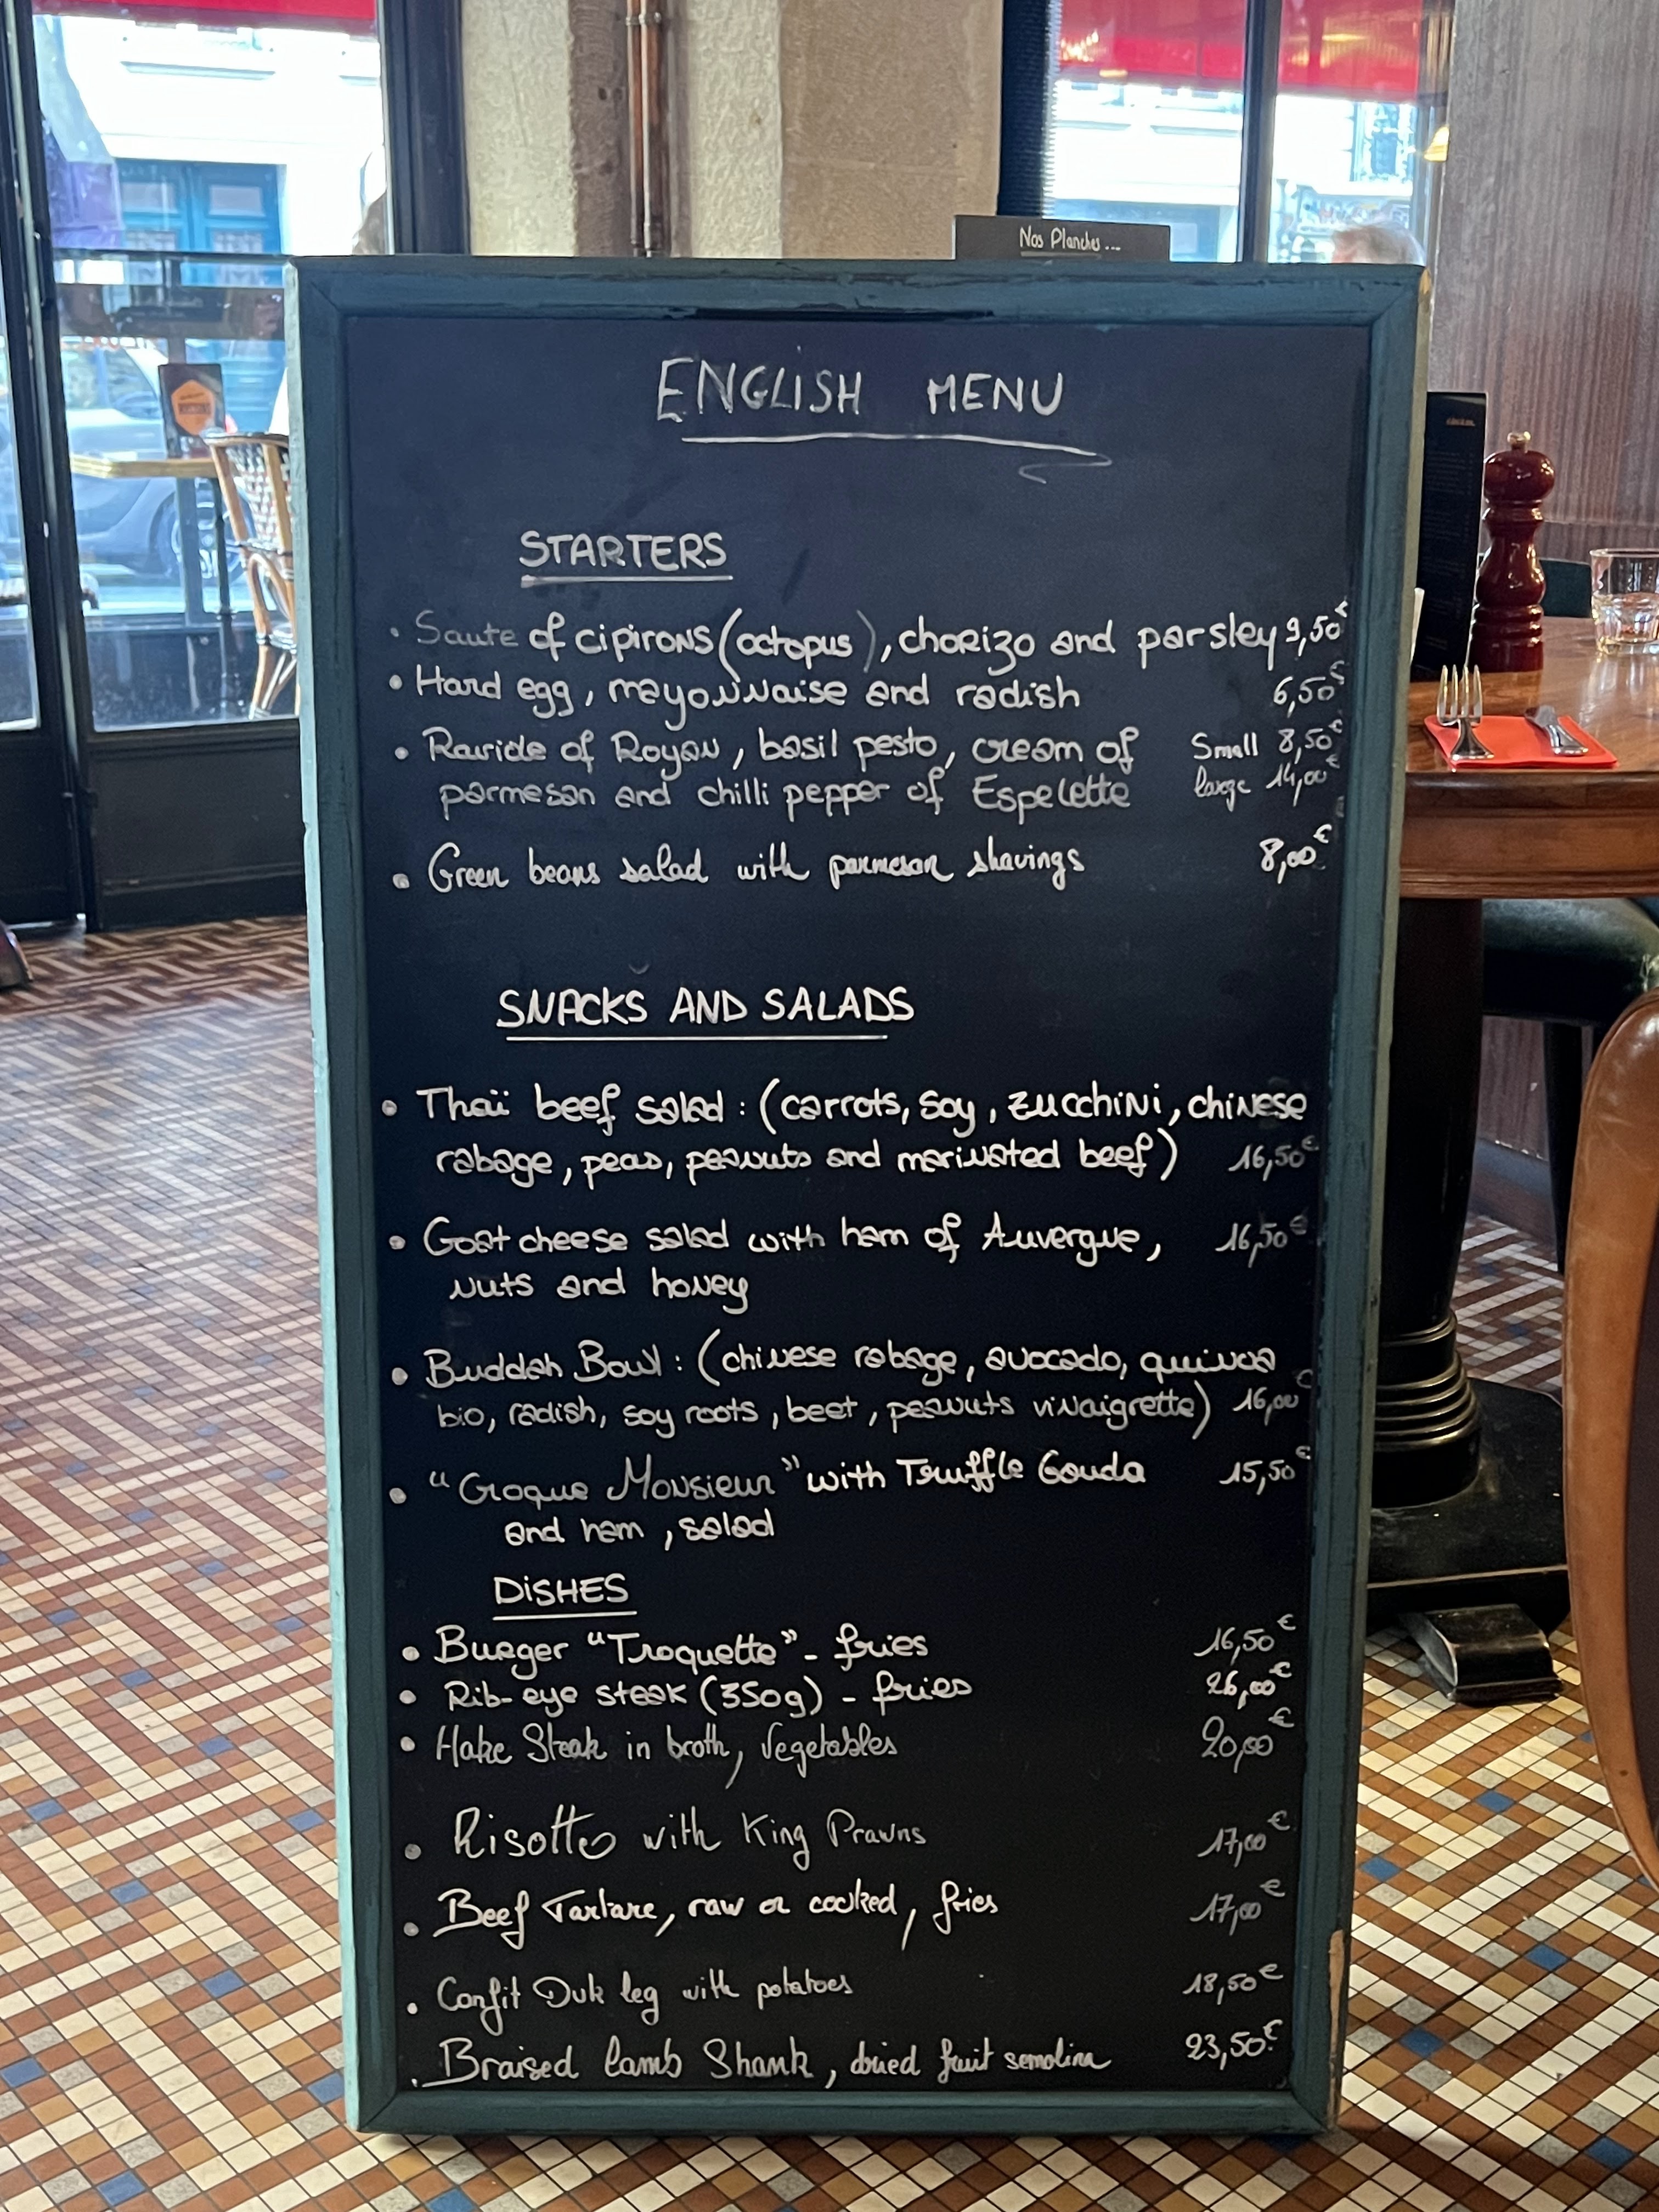 Nos Planches...
ENGLISH MENU
STARTERS
• Saute of cipirons (octopus), chorizo and parsley 9,50€
• Hard egg, mayonnaise and radish 6,50€
• Raviole of Royan, basil pesto, cream of Small 8,50€
parmesan and chilli pepper of Espelette large 14,00€
• Green beans salad with parmesan shavings 8,00€
SNACKS AND SALADS
• Thaï beef salad : (carrots, soy, zucchini, chinese
cabage, peas, peanuts and marinated beef) 16,50€
• Goat cheese salad with ham of Auvergne, 16,50€
nuts and honey
• Buddah Bowl : (chinese cabage, avocado, quinoa
bio, radish, soy roots, beet, peanuts vinaigrette) 16,00€
• "Croque Monsieur" with Truffle Gouda 15,50€
and ham, salad
DiSHES
• Burger "Troquette" - fries 16,50€
• Rib-eye steak (350g) - fries 26,00€
• Hake Steak in broth, Vegetables 20,00€
• Risotto with King Prawns 17,00€
• Beef Tartare, raw or cooked, fries 17,00€
• Confit Duk leg with potatoes 18,50€
• Braised lamb Shank, dried fruit semolina 23,50€